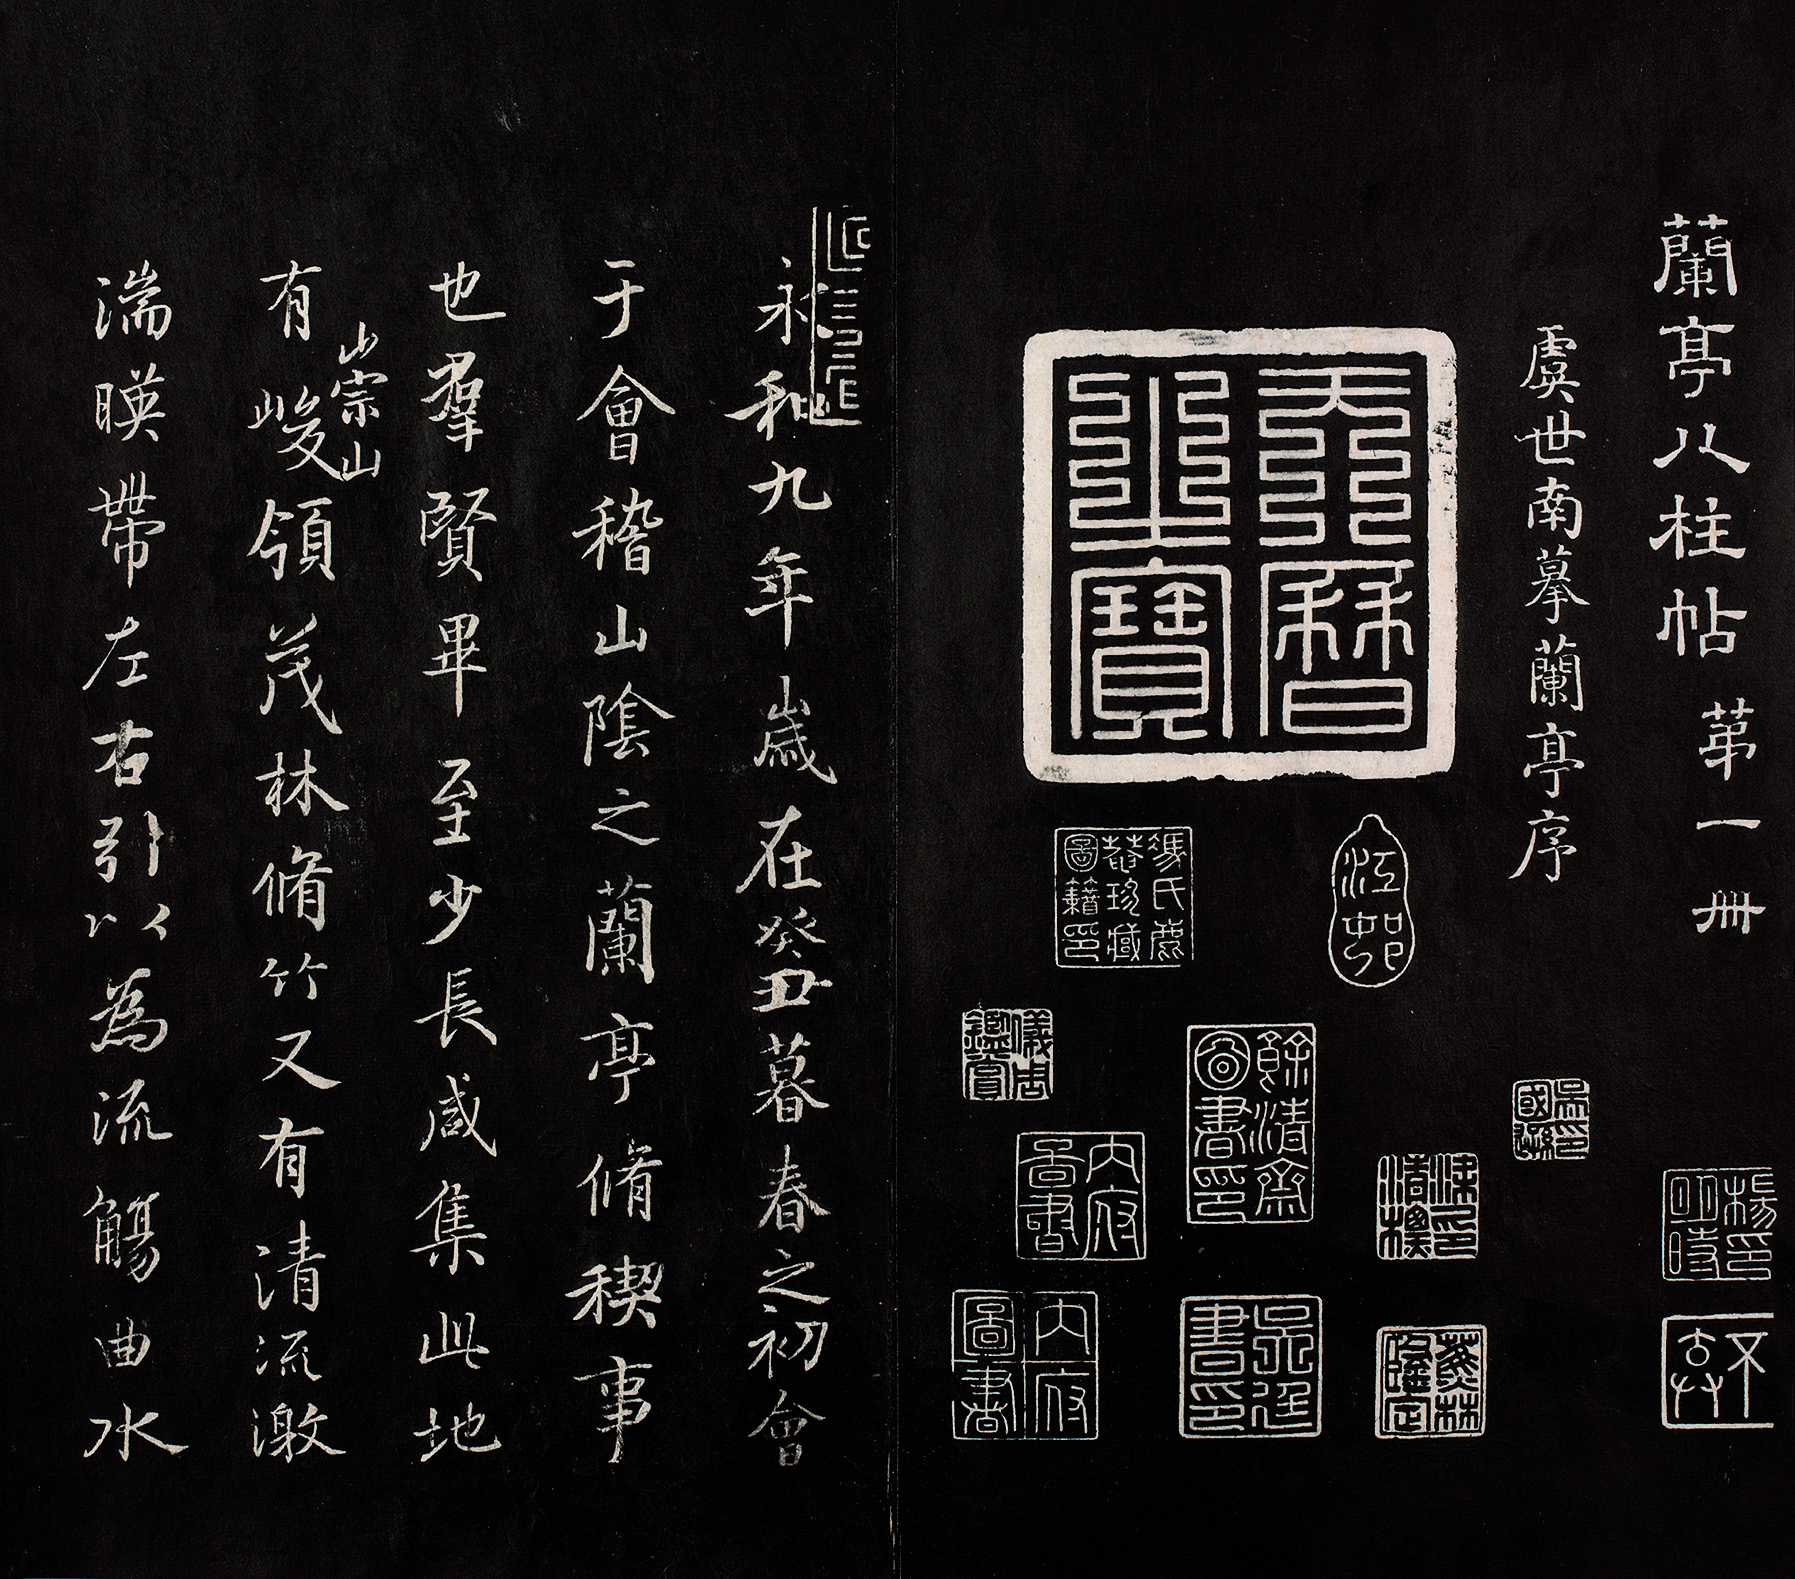 蘭亭八柱帖 第一冊
虞世南摹蘭亭序
天曆之寶
江邨
馮氏鹿菴珍藏圖籍印
儀周鑑賞
餘清齋圖書印
內府圖書
吳廷書印
內府圖書
蕉林鑑定
楊明時印
永和九年歲在癸丑暮春之初會
于會稽山陰之蘭亭脩稧事
也羣賢畢至少長咸集此地
有崇山峻領茂林脩竹又有清流激
湍暎帶左右引以為流觴曲水